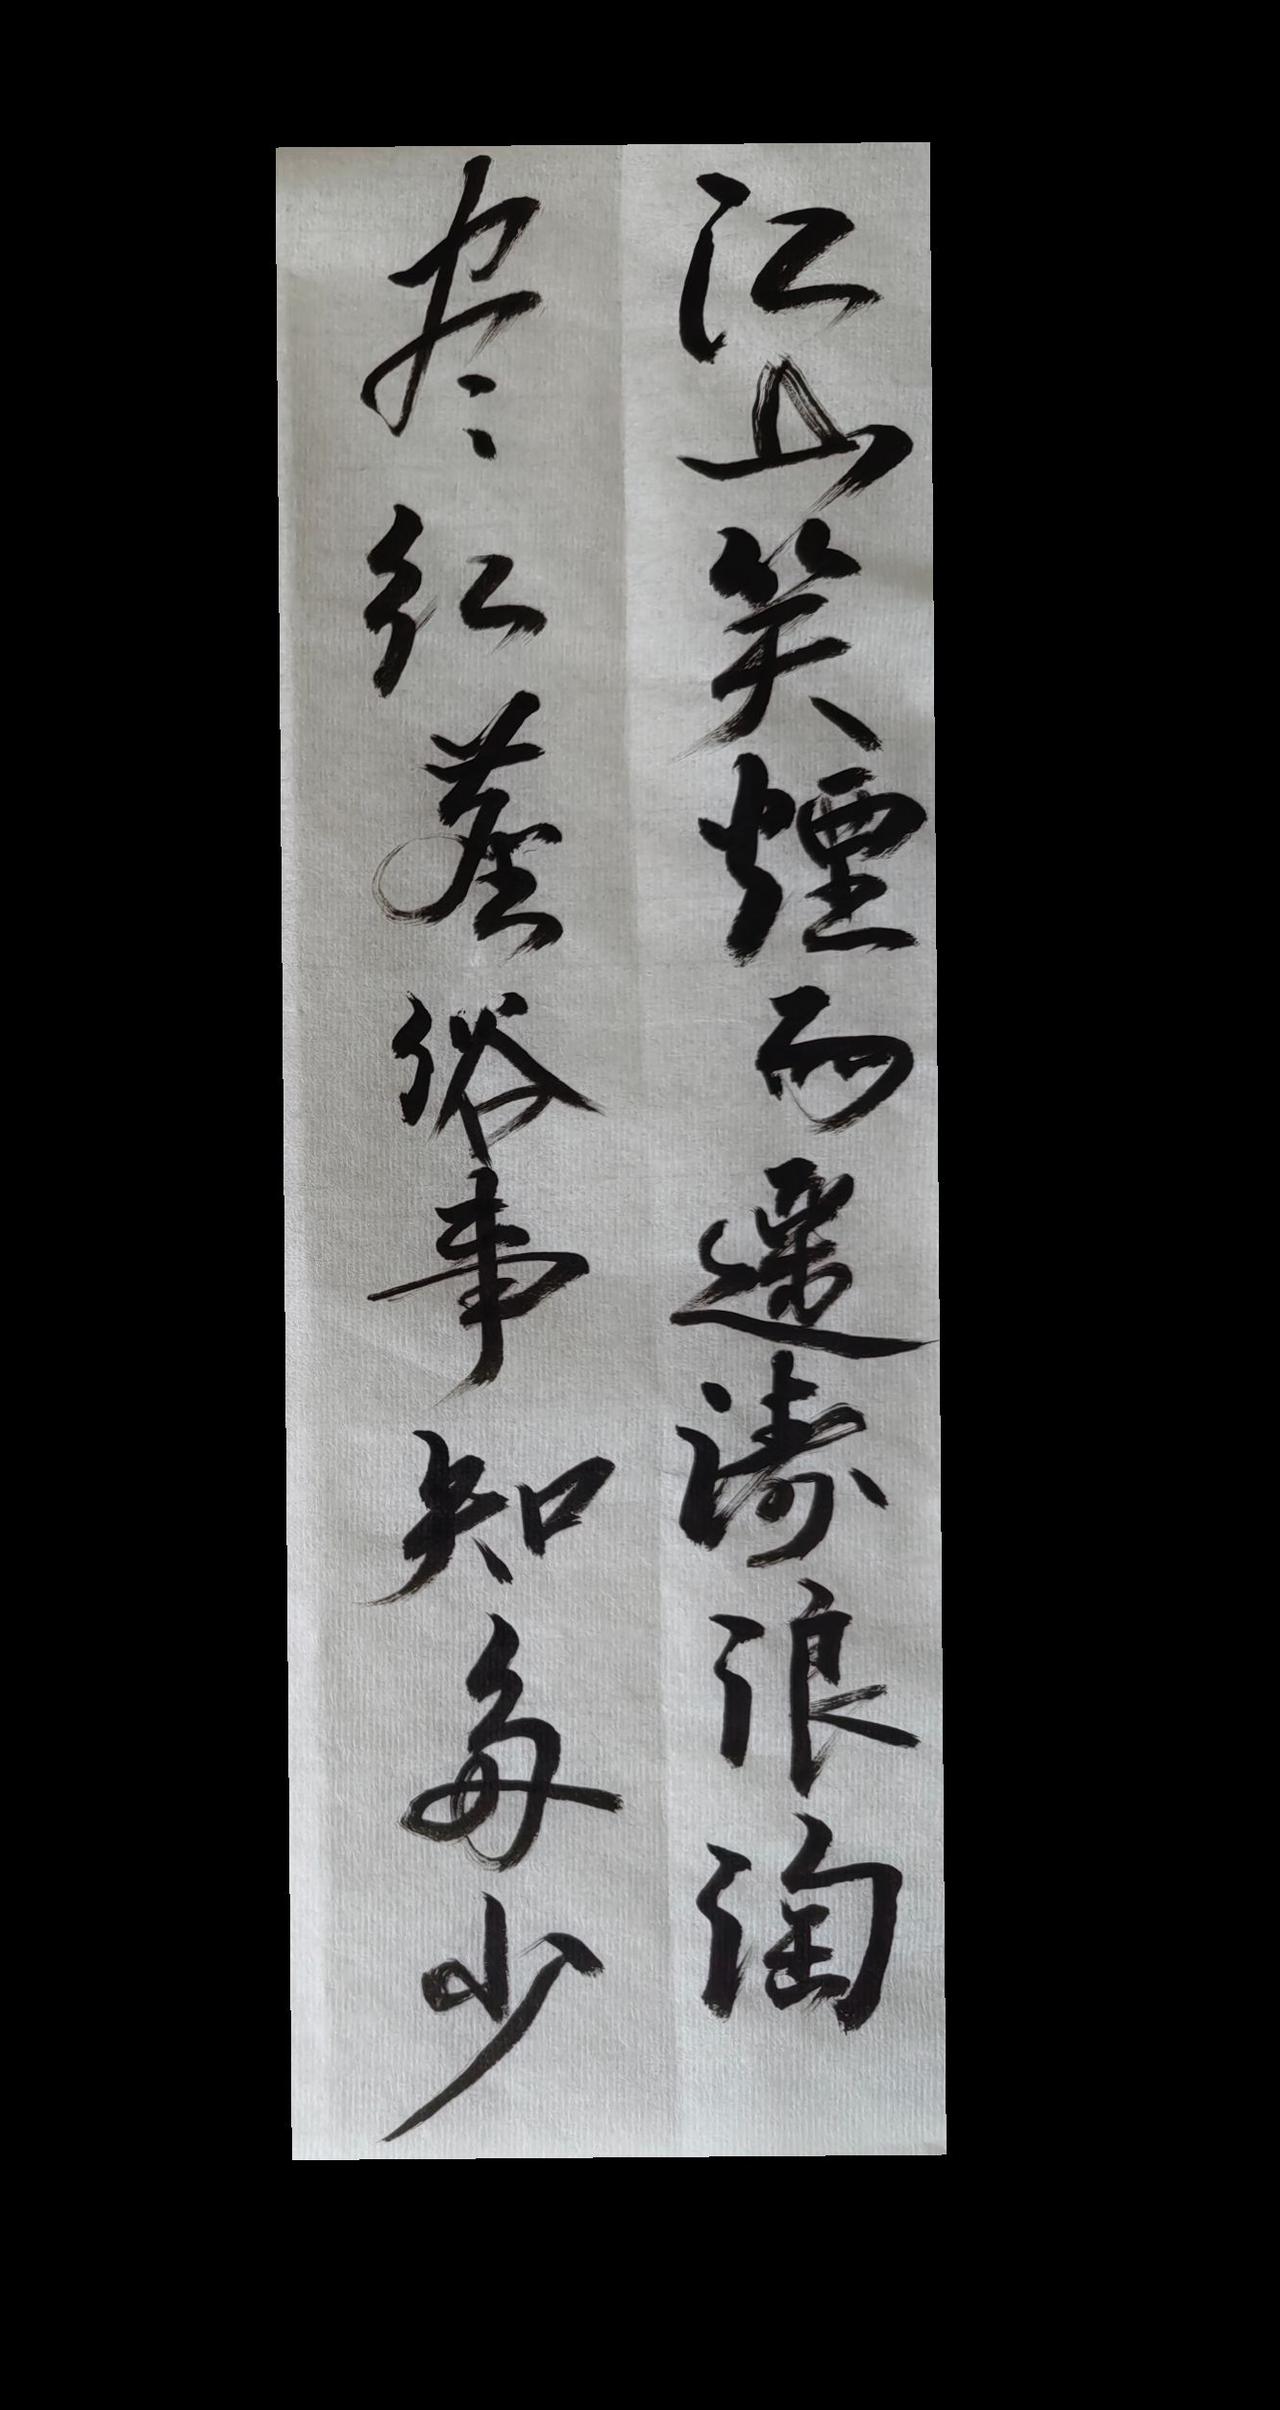 江山笑煙雨遥濤浪淘
尽红塵俗事知多少